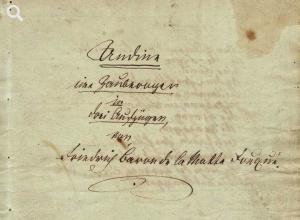 Undine
eine Zauberoper
in
drei Aufzügen,
von
Friedrich Baron de la Motte Fouqué.